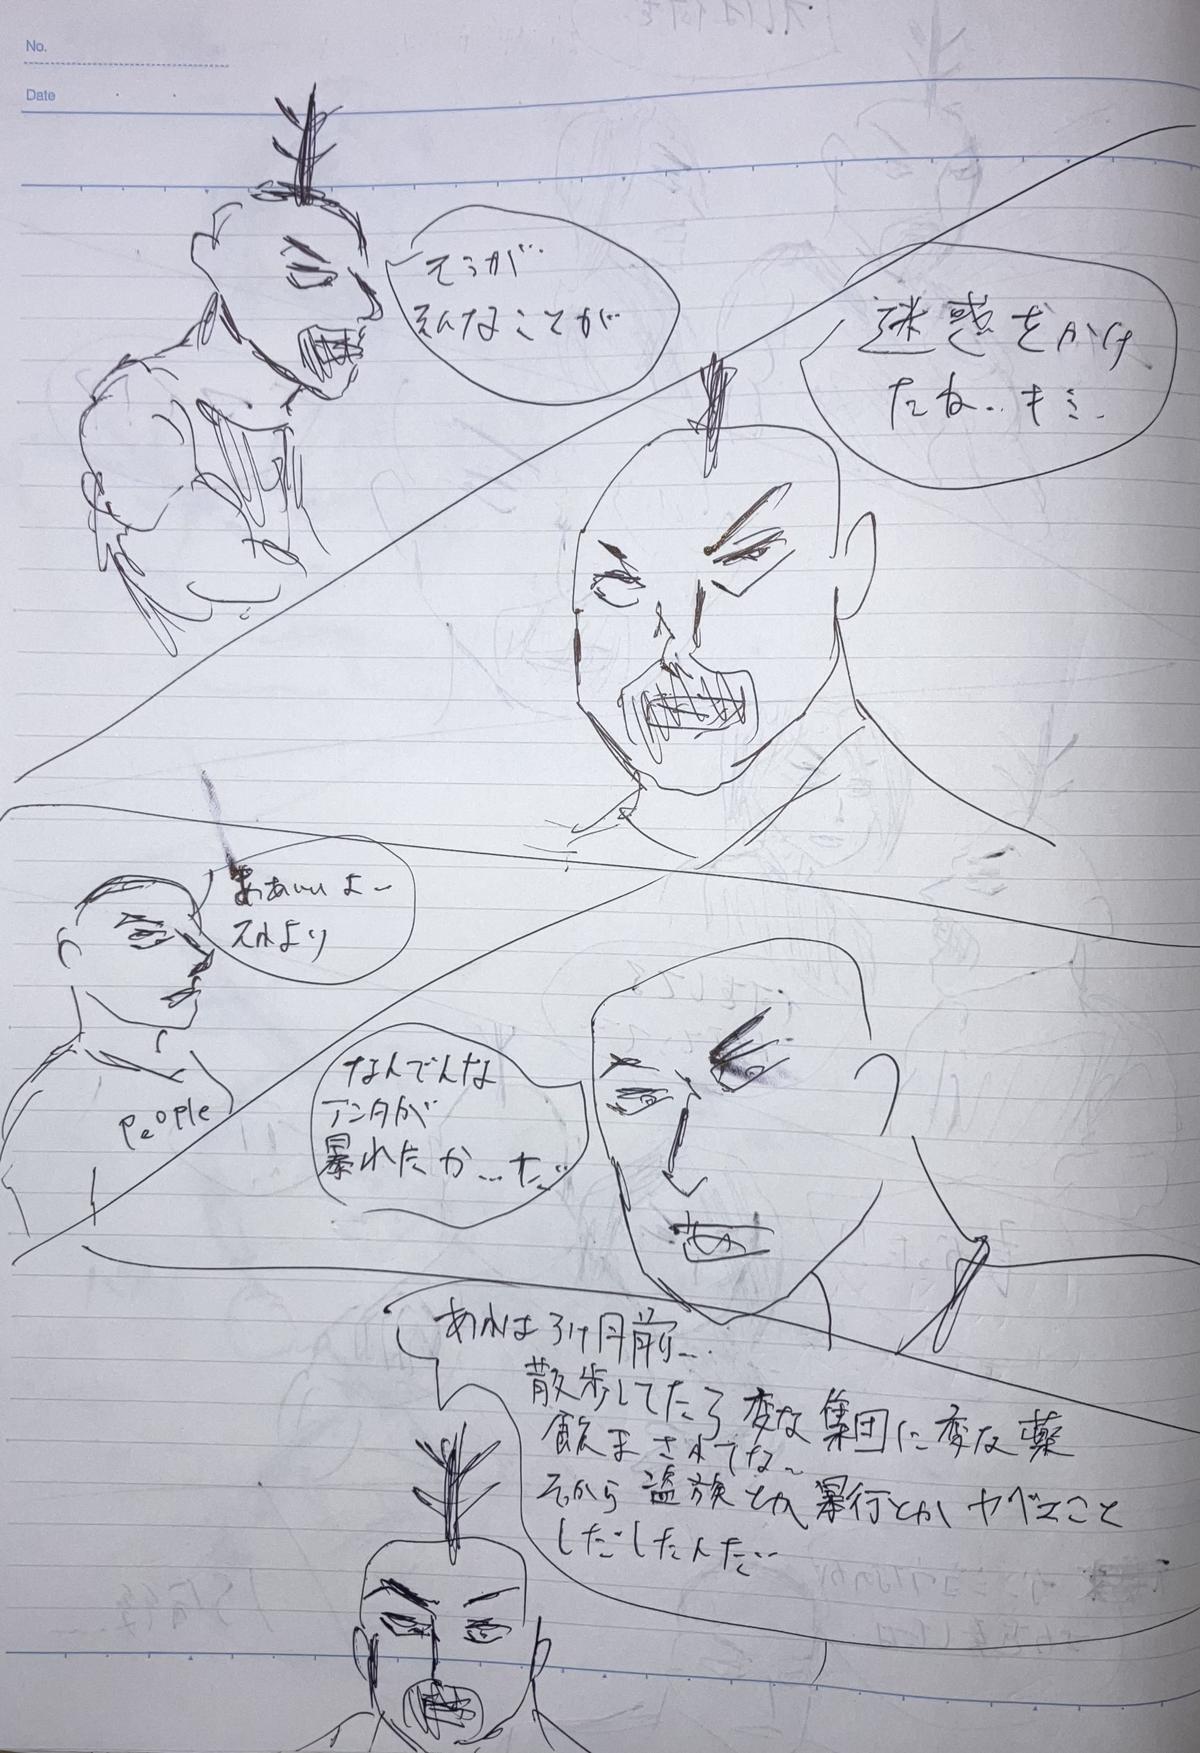 No.
Date
そうが…
そんなことが
迷惑をかけ
たね… キミ.
まあいいよー
スルより
People
なんでんな
アンタが
暴れたか…だ
あれは3ヶ月前…
散歩してたら変な集団に変な薬
飲まされてな〜
そっから盗族とか暴行とかヤベエこと
しだしたんだ…